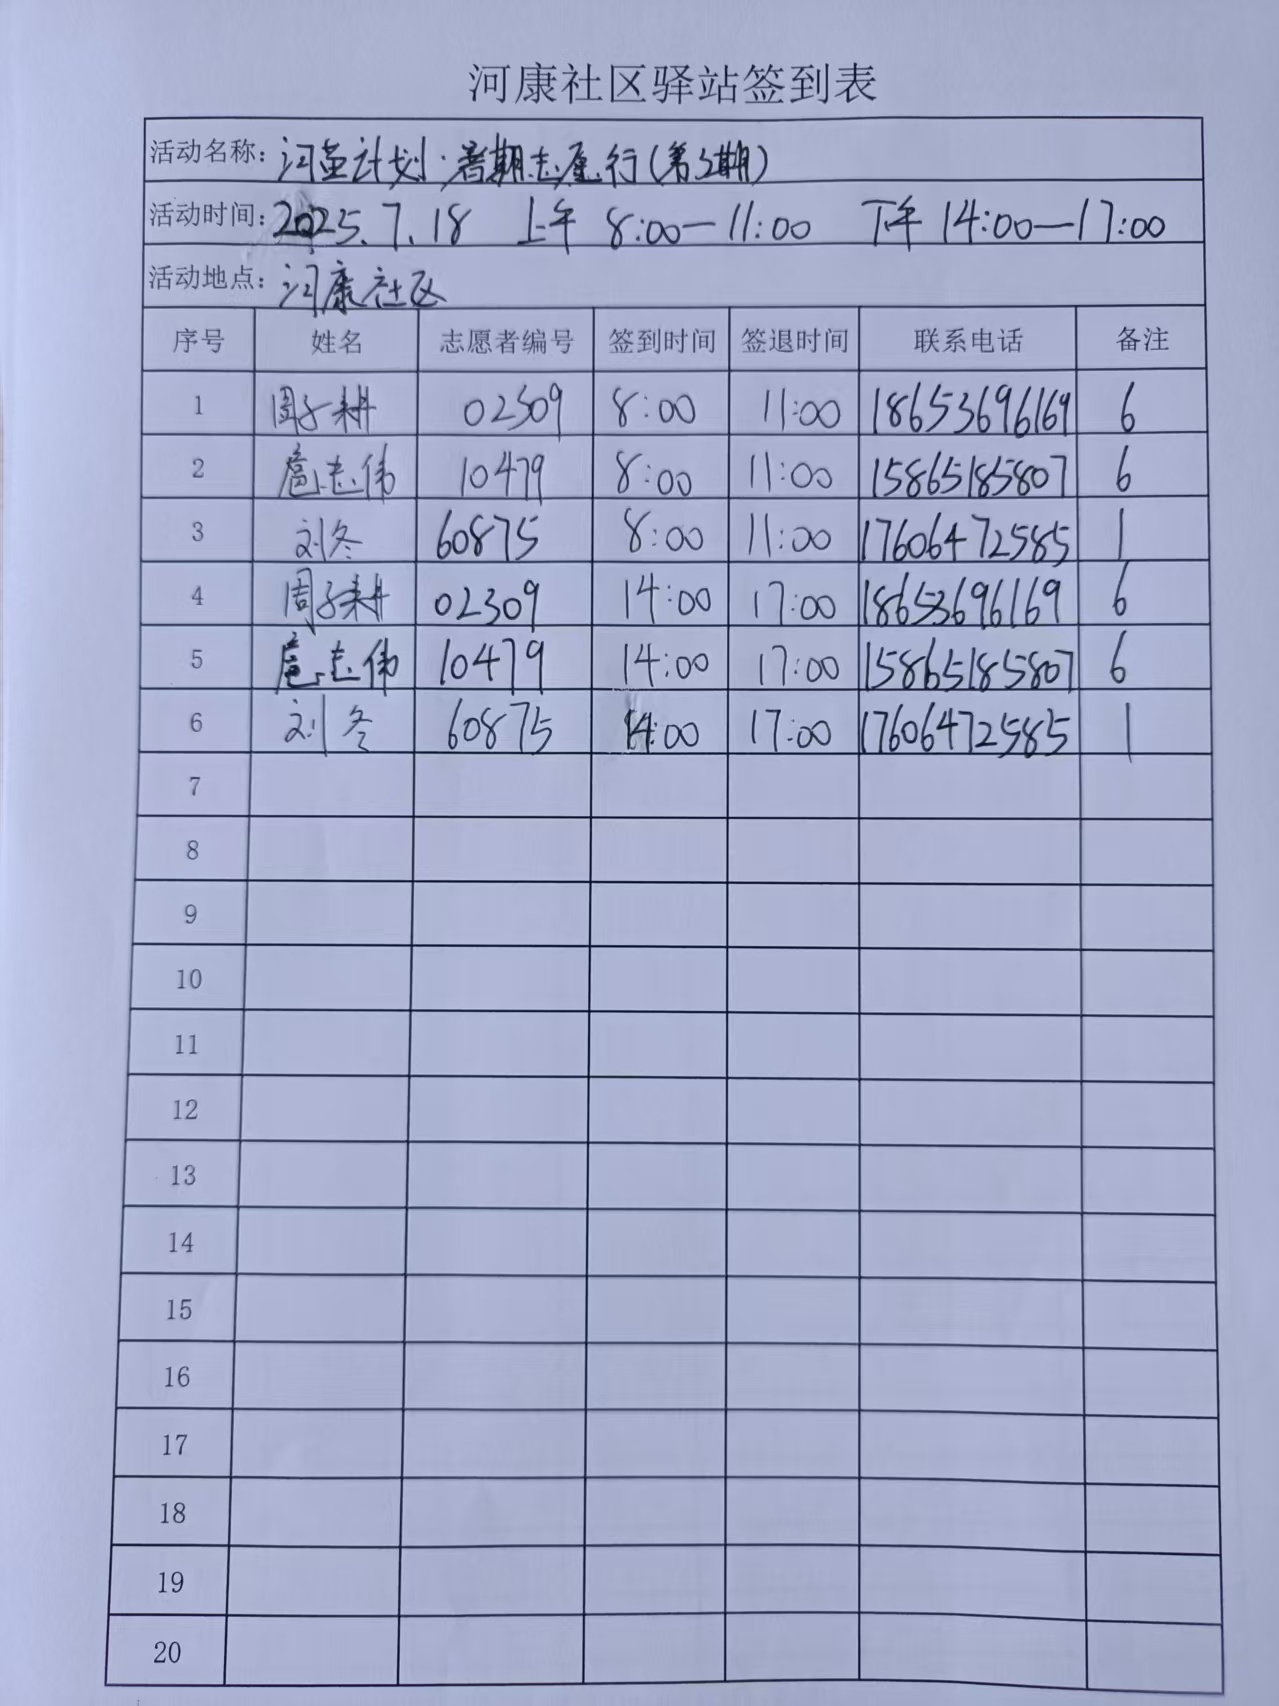 河康社区驿站签到表
活动名称：河蓝计划·暑期志愿行（第3期）
活动时间：2025.7.18 上午 8:00—11:00 下午 14:00—17:00
活动地点：河康社区
序号 姓名 志愿者编号 签到时间 签退时间 联系电话 备注
1 周子耕 02309 8:00 11:00 18653696169 6
2 扈志伟 10479 8:00 11:00 15865185807 6
3 刘冬 60875 8:00 11:00 17606472585 1
4 周子耕 02309 14:00 17:00 18653696169 6
5 扈志伟 10479 14:00 17:00 15865185807 6
6 刘冬 60875 14:00 17:00 17606472585 1
7
8
9
10
11
12
13
14
15
16
17
18
19
20